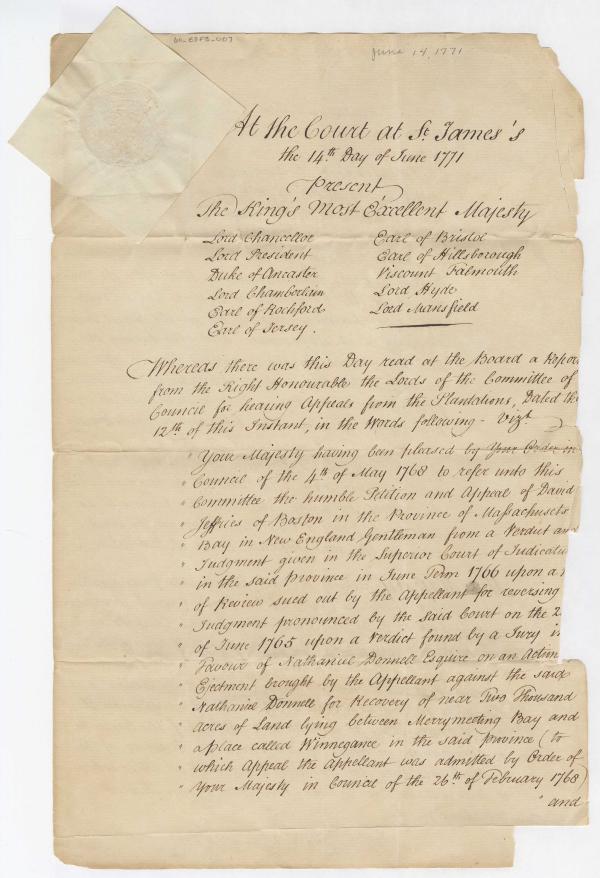 June 14, 1771
At the Court at St. James's
the 14th Day of June 1771
Present
The King's Most Excellent Majesty
Lord Chancellor Earl of Bristol
Lord President Earl of Hillsborough
Duke of Ancaster Viscount Falmouth
Lord Chamberlain Lord Hyde
Earl of Rochford Lord Mansfield
Earl of Jersey.
Whereas there was this Day read at the Board a Repor
from the Right Honourable the Lords of the Committee of
Council for hearing Appeals from the Plantations, Dated the
12th of this Instant, in the Words following - Vizt.
" Your Majesty having been pleased by Your Order in
" Council of the 4th of May 1768 to refer unto this
" Committee the humble Petition and Appeal of David
" Jeffries of Boston in the Province of Massachusets
" Bay in New England Gentleman from a Verdict and
" Judgment given in the Superior Court of Judicatu
" in the said Province in June Term 1766 upon a
" of Review sued out by the Appellant for reversing
" Judgment pronounced by the said Court on the 2
" of June 1765 upon a Verdict found by a Jury in
" Favour of Nathaniel Donnell Esquire on an Action
" Ejectment brought by the Appellant against the said
" Nathaniel Donnell for Recovery of near Two Thousand
" Acres of Land lying between Merrymeeting Bay and
" a Place called Winnegance in the said Province (to
" which Appeal the Appellant was admitted by Order of
" Your Majesty in Council of the 26th of February 1768)
" and